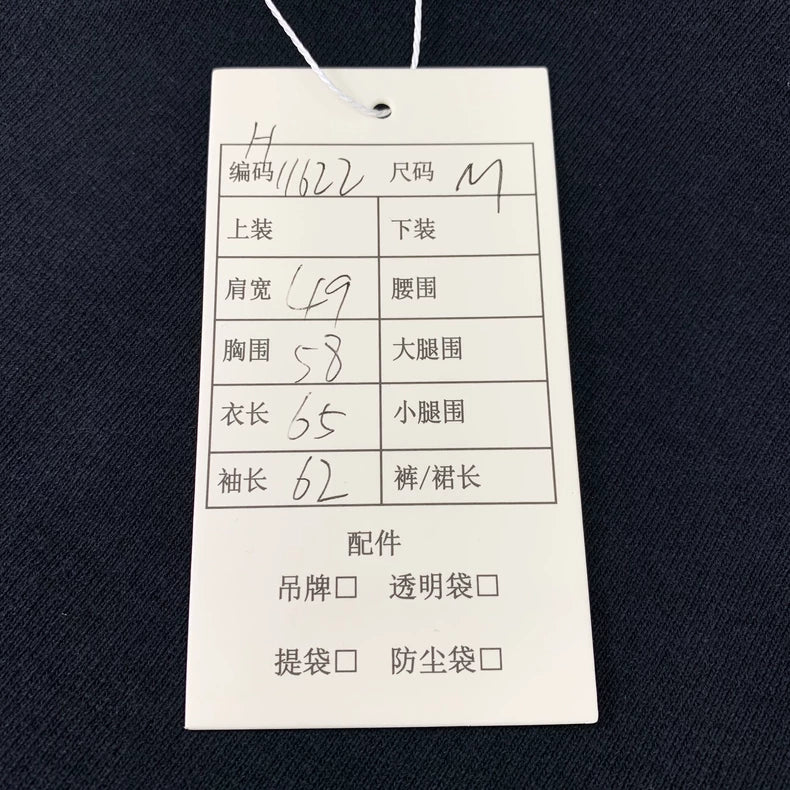 H
编码 11622 尺码 M
上装 下装
肩宽 49 腰围
胸围 58 大腿围
衣长 65 小腿围
袖长 62 裤/裙长
配件
吊牌□ 透明袋□
提袋□ 防尘袋□